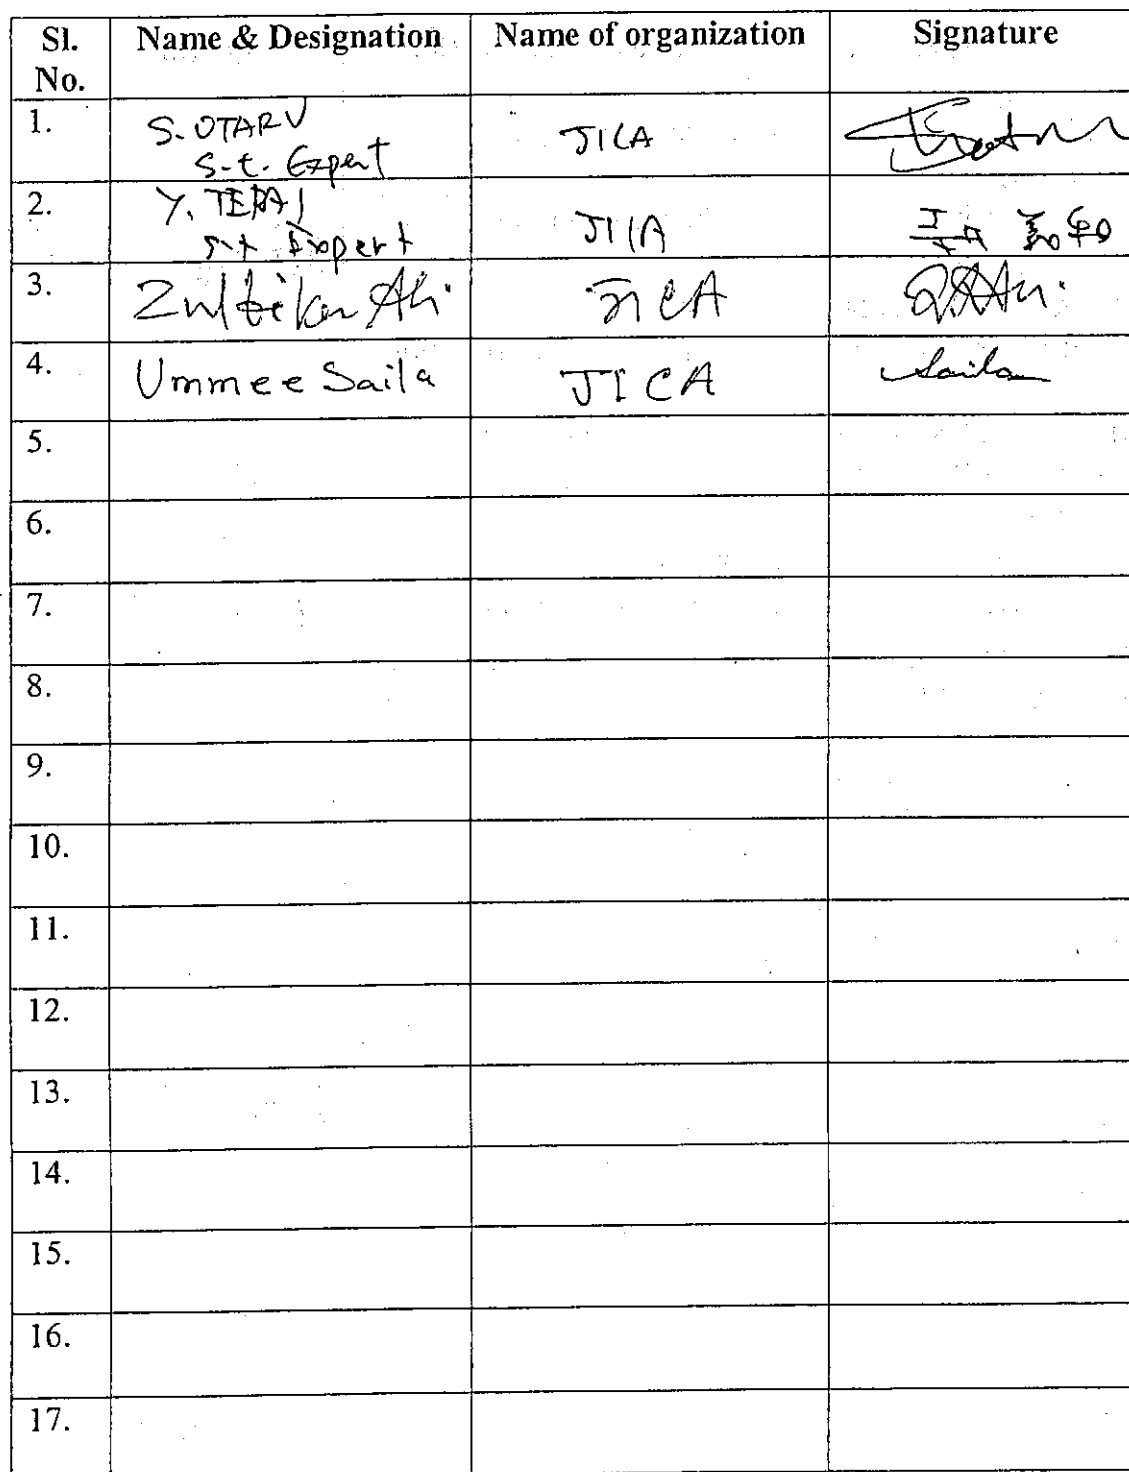 Sl. No. Name & Designation Name of organization Signature
1. S. OTARU JICA
S.t. Expert
2. Y. TERAI JICA
s.t Expert
3. Zulfikar Ali JICA
4. Ummee Saila JICA Saila
5.
6.
7.
8.
9.
10.
11.
12.
13.
14.
15.
16.
17.